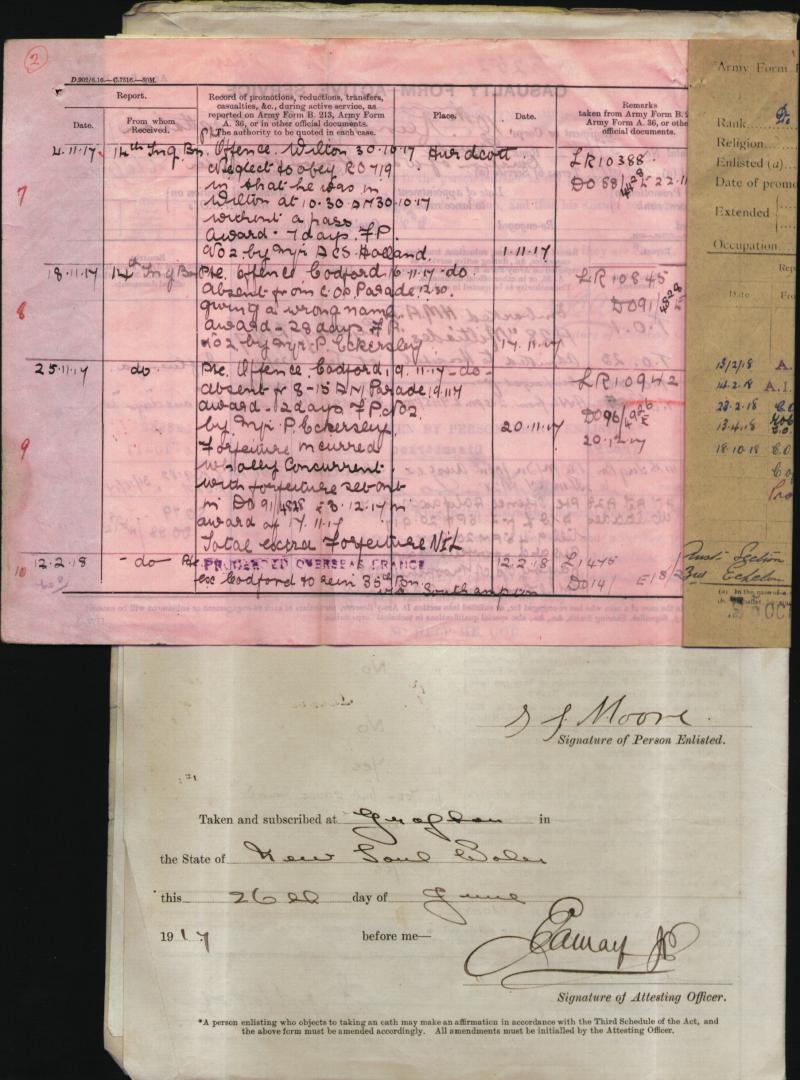 2
D.902/6.16.—C.7516.—50M.
Report.
Date.
From whom Received.
Record of promotions, reductions, transfers,
casualties, &c., during active service, as
reported on Army Form B. 213, Army Form
A. 36, or in other official documents.
The authority to be quoted in each case.
Place.
Date.
Remarks
taken from Army Form B.
Army Form A. 36, or othe
official documents.
7
4.11.17. 14th Tng Bn. Pte. Offence Wilton 30.10.17 Hurdcott LR10388
Neglect to obey RO719 DO 88/
in that he was in
Wilton at 10.30 PM 30.10.17
without a pass
Award - 7 days F.P.
No2 by Mjr A C S Holland. 1.11.17
8
18.11.17 14th Tng Bn Pte. Offence Codford 16.11.17 -do- LR10845
Absent from C.O.s Parade 12.30. DO91/
giving a wrong name
award - 28 days F.P.
No2 by Mjr P. Eckersley 17.11.17
9
25.11.17 do Pte. Offence Codford 19.11.17 -do- LR10942
absent fr 8-15 AM Parade 19.11.17
award - 12 days F.P. No2 DO96/
by Mjr P. Eckersley 20.11.17 20.12.17
Forfeiture incurred
wholly Concurrent
with forfeiture set out
in DO91/ 8.12.17 in
award of 17.11.17
Total extra Forfeiture NIL
10
12.2.18 - do - Pte PROCEEDED OVERSEAS FRANCE 12.2.18 L1475
ex Codford to rein 35th Bn. DO14/
via Southampton
Army Form
Rank
Religion
Enlisted (a)
Date of promo
Extended
Occupation
Rep
Date
Fro
13/2/18 A.
14.2.18 A.I.
23.2.18
13.4.18
18.10.18
Section
3rd Echelon
OCT
Moore.
Signature of Person Enlisted.
Taken and subscribed at Grafton in
the State of New South Wales
this 26th day of June
1917 before me—
Signature of Attesting Officer.
*A person enlisting who objects to taking an oath may make an affirmation in accordance with the Third Schedule of the Act, and
the above form must be amended accordingly. All amendments must be initialled by the Attesting Officer.